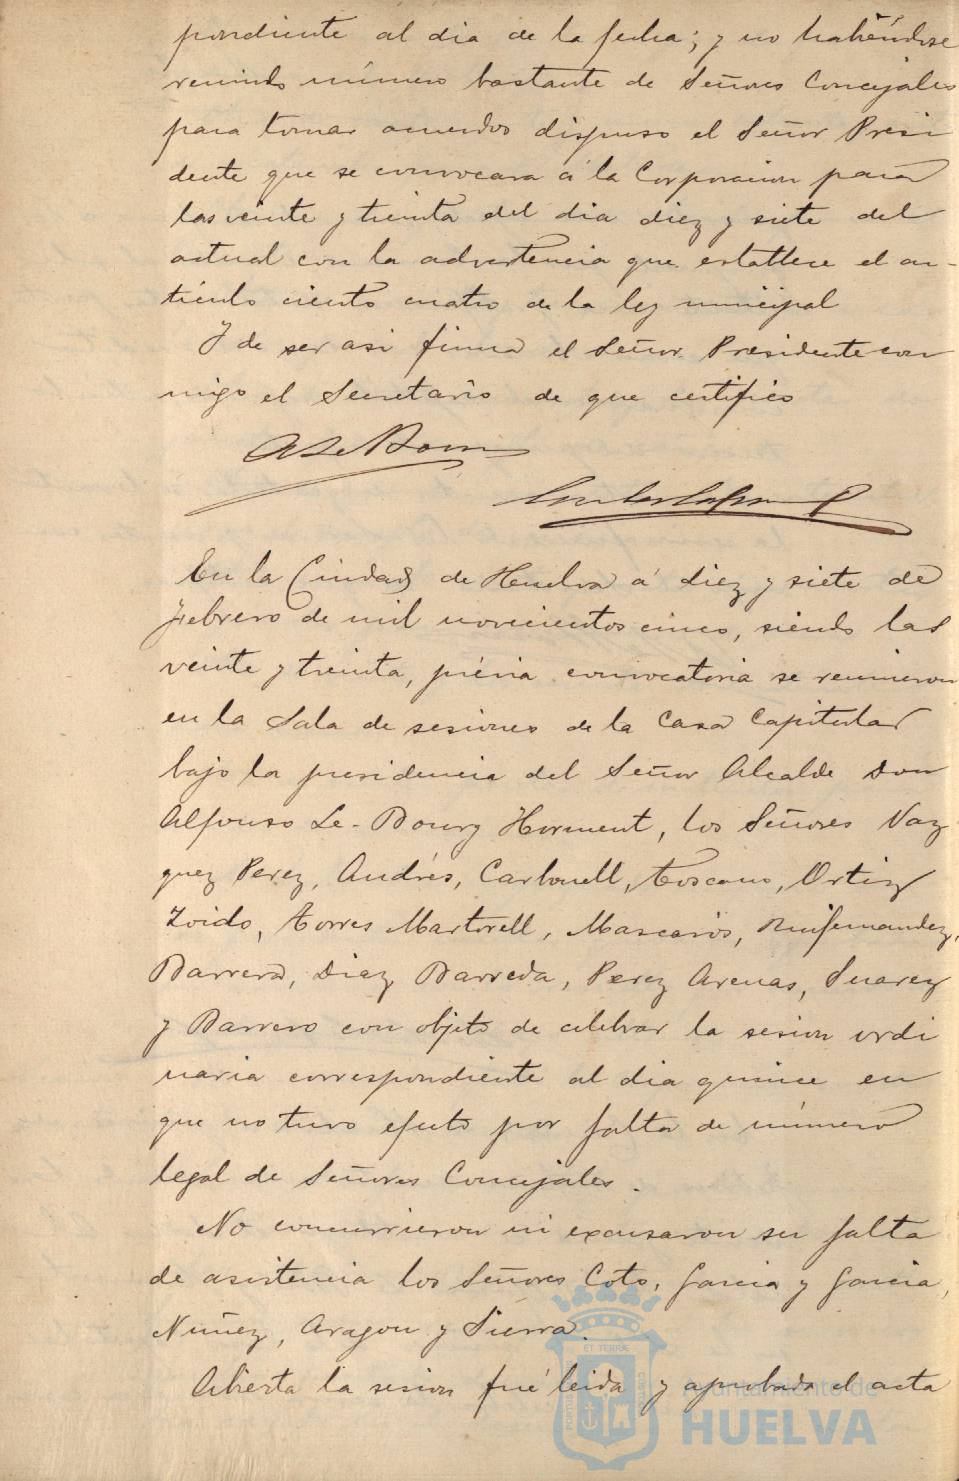 pondiente al dia de la fecha; y no habiéndose
reunido número bastante de Señores Concejales
para tomar acuerdos dispuso el Señor Presi
dente que se convocara á la Corporacion para
las veinte y treinta del dia diez y siete del
actual con la advertencia que establece el ar-
tículo ciento cuatro de la ley municipal
Y de ser asi firma el Señor Presidente con
migo el Secretario de que certifico
En la Ciudad de Huelva á diez y siete de
Febrero de mil novecientos cinco, siendo las
veinte y treinta, prévia convocatoria se reunieron
en la Sala de sesiones de la Casa Capitular
bajo la presidencia del Señor Alcalde Don
Alfonso Le-Bourg Horment, los Señores Vaz
quez Perez, Andrés, Carbonell, Toscano, Ortiz
Zoido, Torres Martorell, Mascarós, Ruifernandez,
Barrera, Diaz Barreda, Perez Arenas, Suarez
y Barrero con objeto de celebrar la sesion ordi
naria correspondiente al dia quince en
que no tuvo efecto por falta de número
legal de Señores Concejales.
No concurrieron ni excusaron su falta
de asistencia los Señores Coto, Garcia y Garcia,
Nuñez, Aragon y Sierra.
Abierta la sesion fué leida y aprobada el acta
Ayuntamiento de
HUELVA